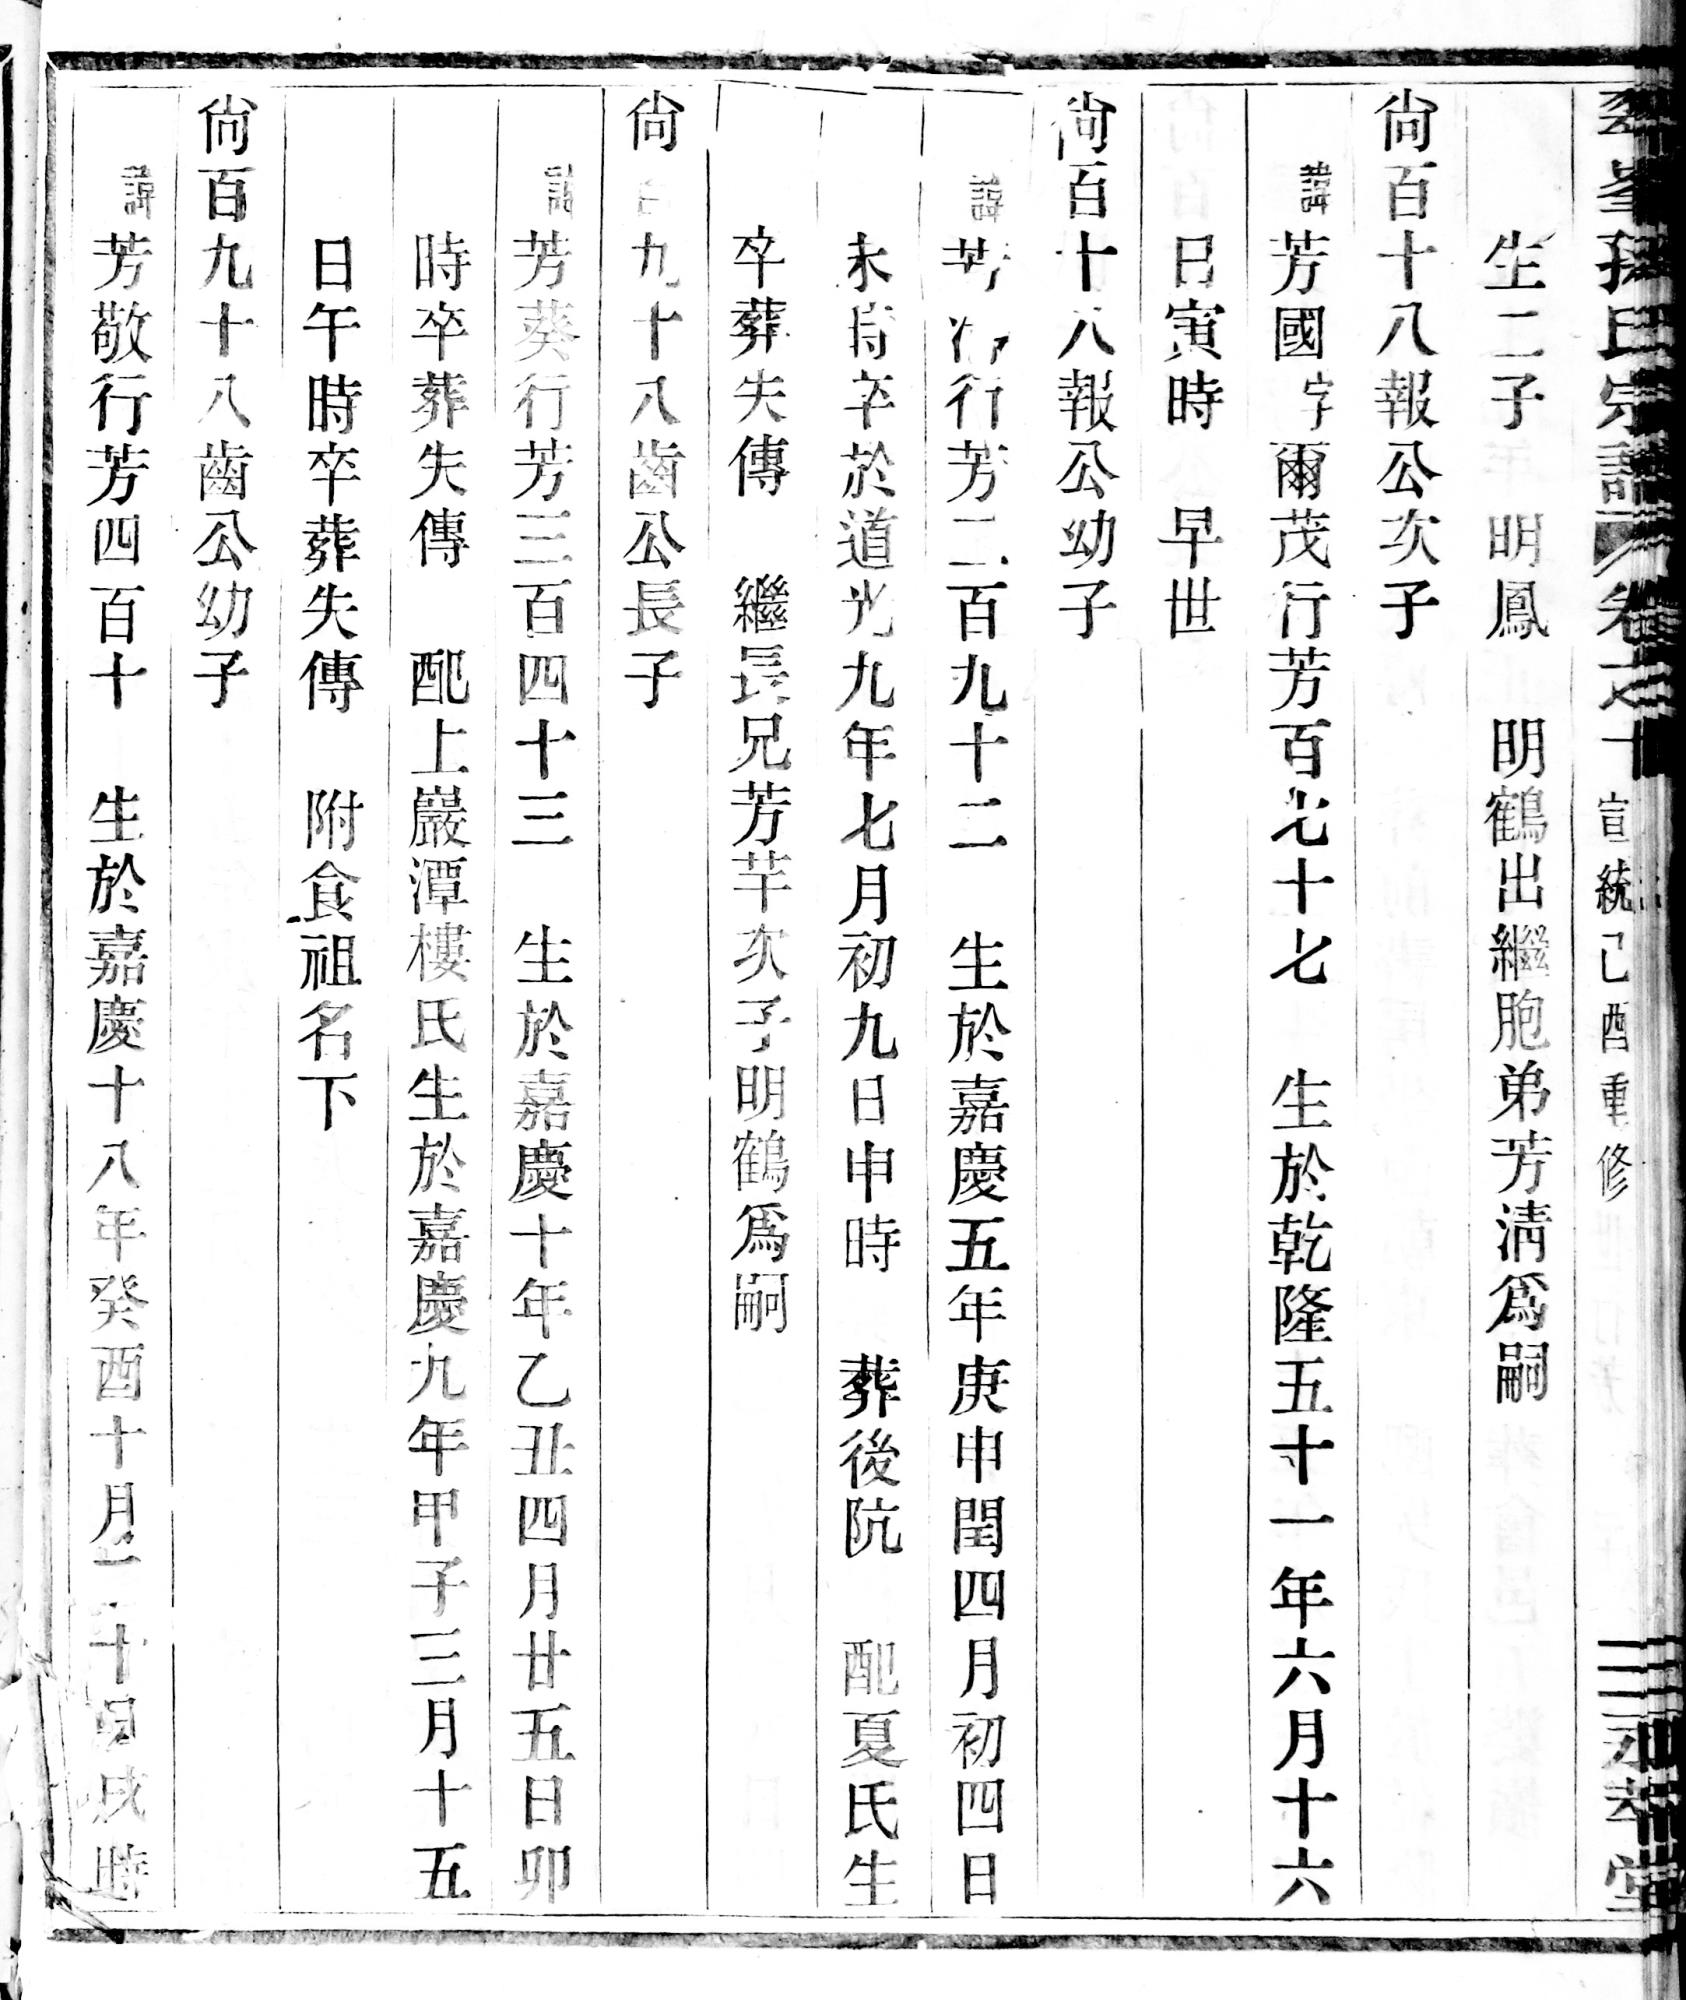 孫氏宗譜 卷之十 宣統己酉重修 堂
生二子 明鳳 明鶴出繼胞弟芳淸爲嗣
尙百十八報公次子
諱芳國字爾茂行芳百七十七 生於乾隆五十一年六月十六
巳寅時 早世
尙百十八報公幼子
諱芳行芳二百九十二 生於嘉慶五年庚申閏四月初四日
未時卒於道光九年七月初九日申時 葬後阬 配夏氏生
卒葬失傳 繼長兄芳芊次子明鶴爲嗣
尙百九十八齒公長子
諱芳葵行芳三百四十三 生於嘉慶十年乙丑四月廿五日卯
時卒葬失傳 配上巖潭樓氏生於嘉慶九年甲子三月十五
日午時卒葬失傳 附食祖名下
尙百九十八齒公幼子
諱芳敬行芳四百十 生於嘉慶十八年癸酉十月二十日戌時